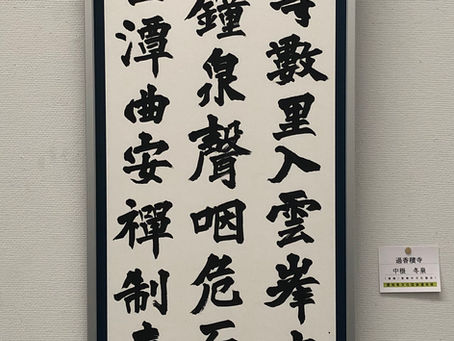 寺數里入雲峯
鐘泉聲咽危石
潭曲安禪制
過香積寺
中根